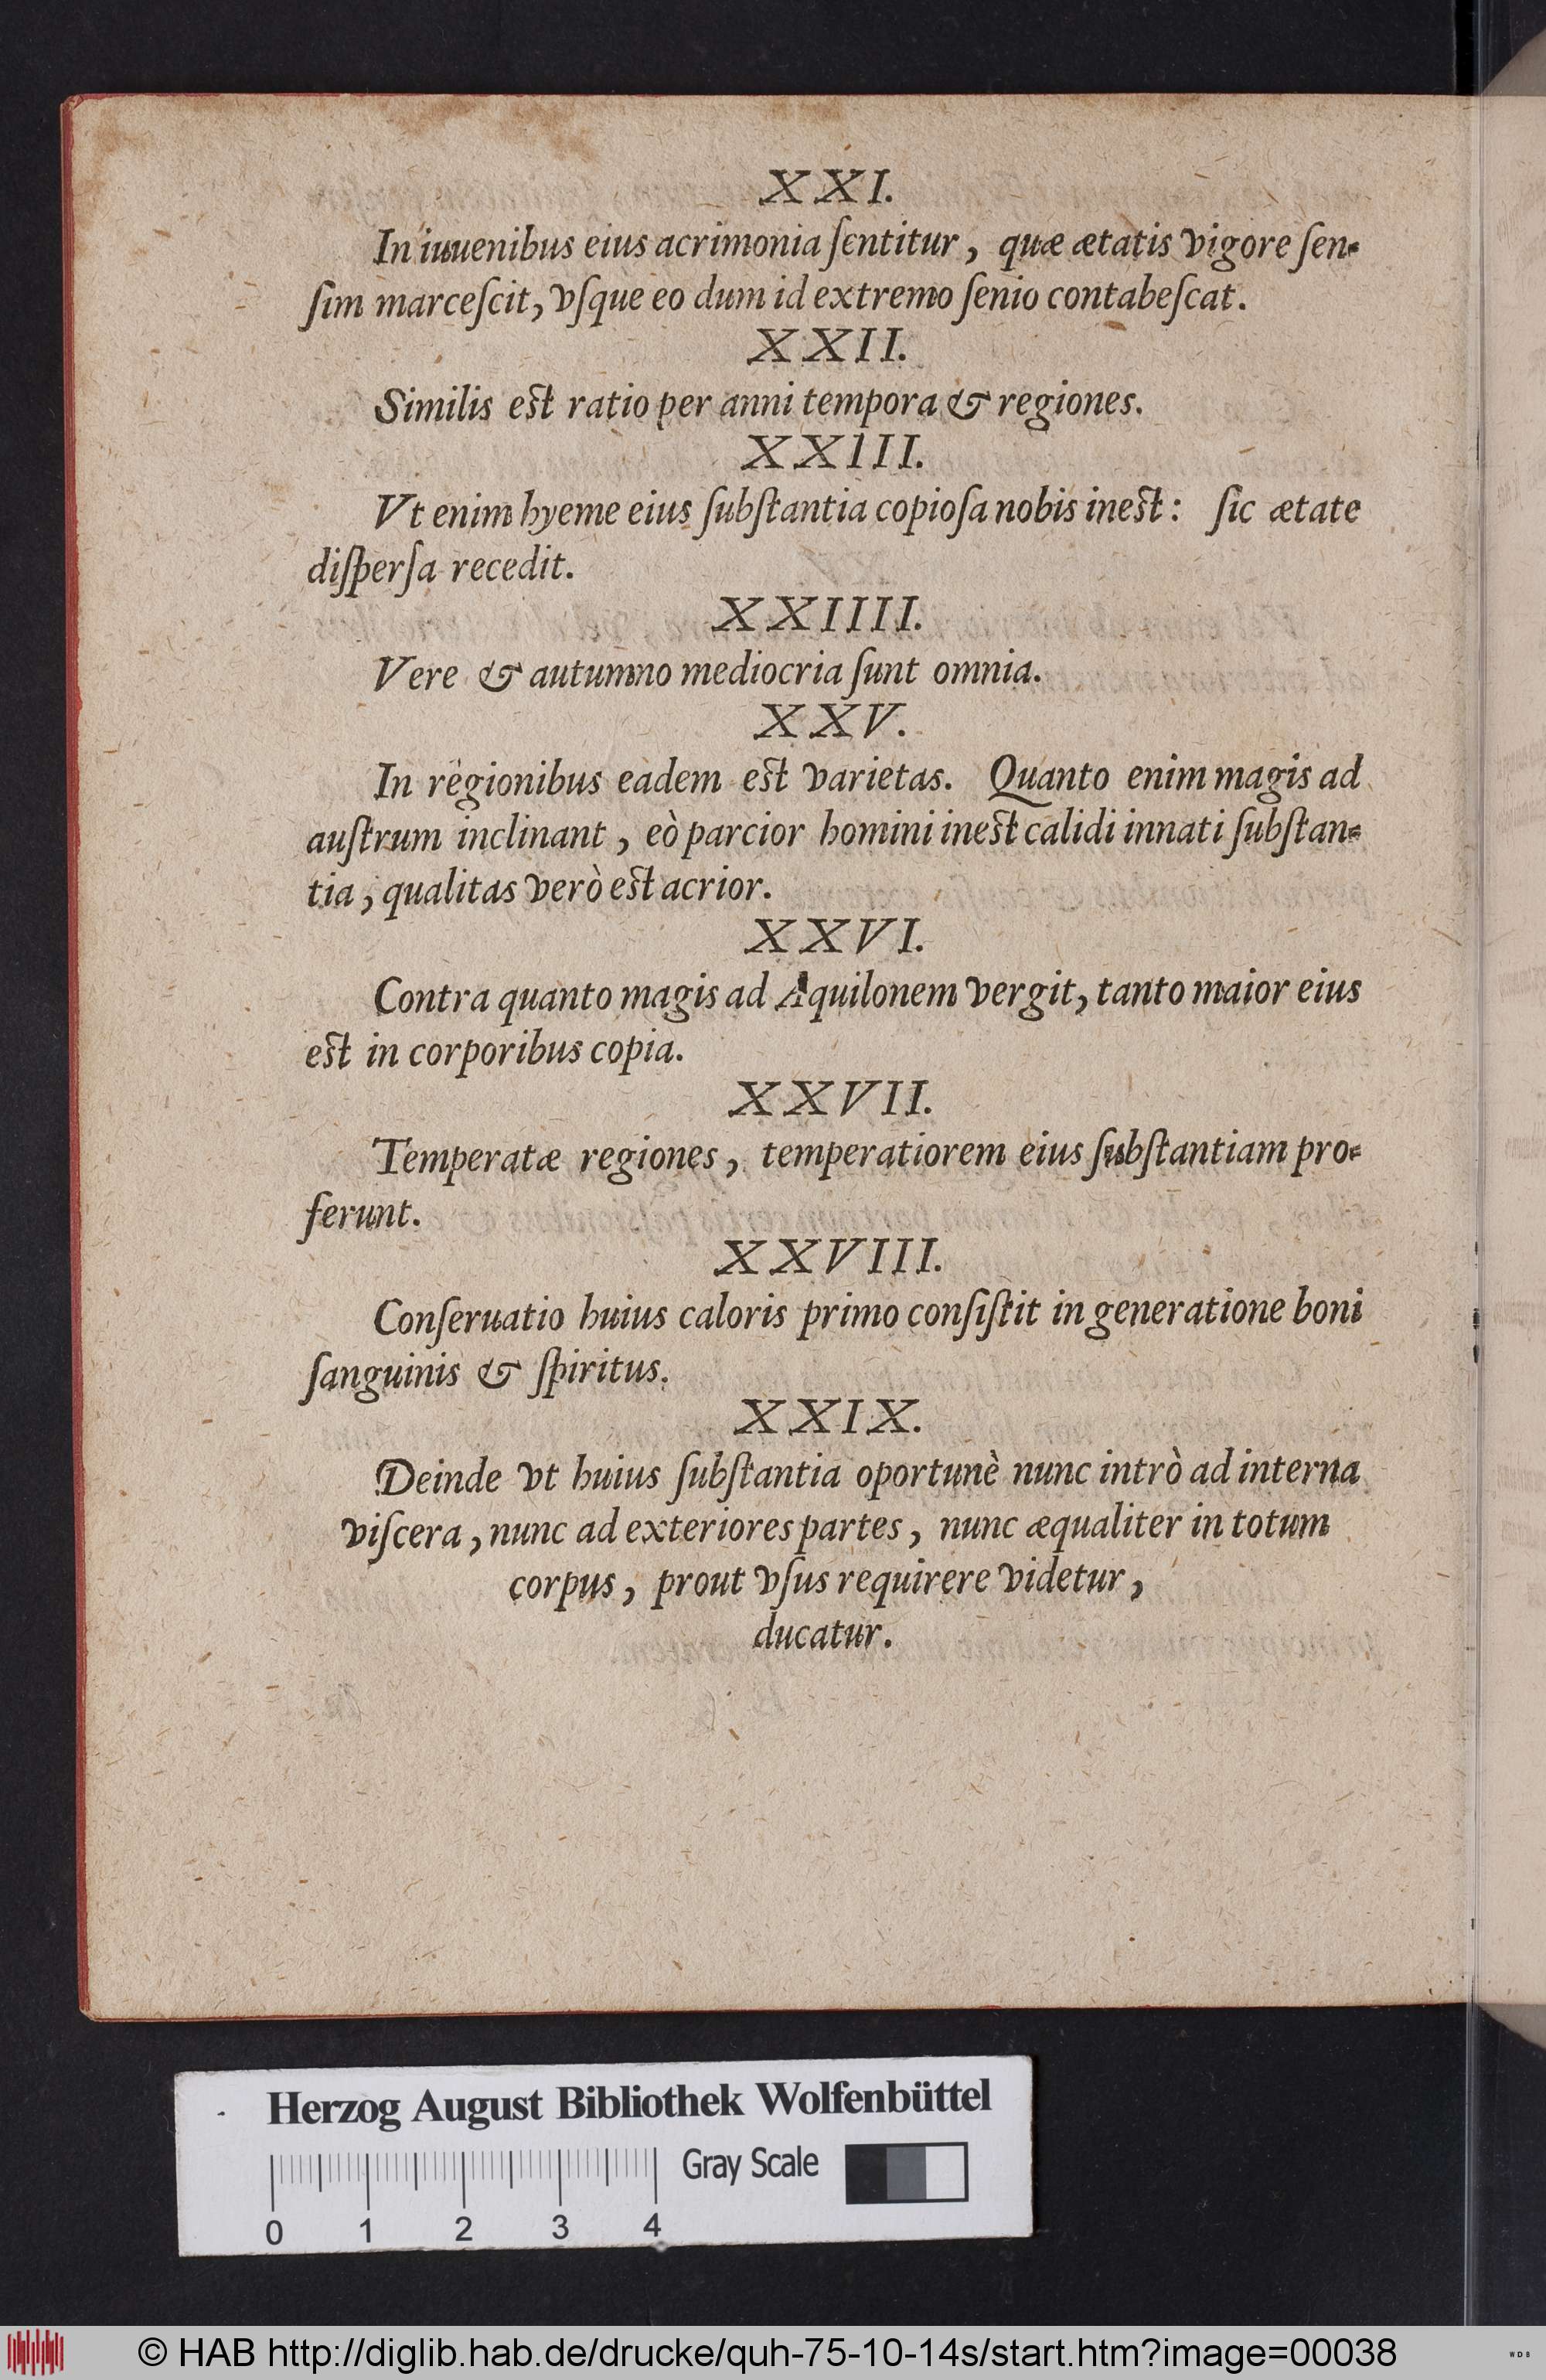 XXI.
In iuuenibus eius acrimonia ſentitur, quæ ætatis vigore ſen-
ſim marceſcit, vſque eo dum id extremo ſenio contabeſcat.
XXII.
Similis eſt ratio per anni tempora & regiones.
XXIII.
Vt enim hyeme eius ſubſtantia copioſa nobis ineſt: ſic ætate
diſperſa recedit.
XXIIII.
Vere & autumno mediocria ſunt omnia.
XXV.
In regionibus eadem eſt varietas. Quanto enim magis ad
auſtrum inclinant, eò parcior homini ineſt calidi innati ſubſtan-
tia, qualitas verò eſt acrior.
XXVI.
Contra quanto magis ad Aquilonem vergit, tanto maior eius
eſt in corporibus copia.
XXVII.
Temperatæ regiones, temperatiorem eius ſubſtantiam pro-
ferunt.
XXVIII.
Conſeruatio huius caloris primo conſiſtit in generatione boni
ſanguinis & ſpiritus.
XXIX.
Deinde vt huius ſubſtantia oportunè nunc intrò ad interna
viſcera, nunc ad exteriores partes, nunc æqualiter in totum
corpus, prout vſus requirere videtur,
ducatur.
Herzog August Bibliothek Wolfenbüttel
Gray Scale
0 1 2 3 4
© HAB http://diglib.hab.de/drucke/quh-75-10-14s/start.htm?image=00038